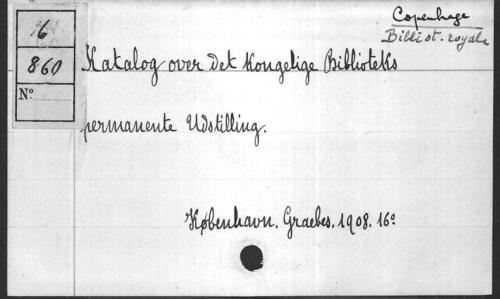 Copenhage
Bibliot. royale
6
860
N°
Katalog over det Kongelige Biblioteks
permanente Udstilling.
København, Graebes, 1908. 16°